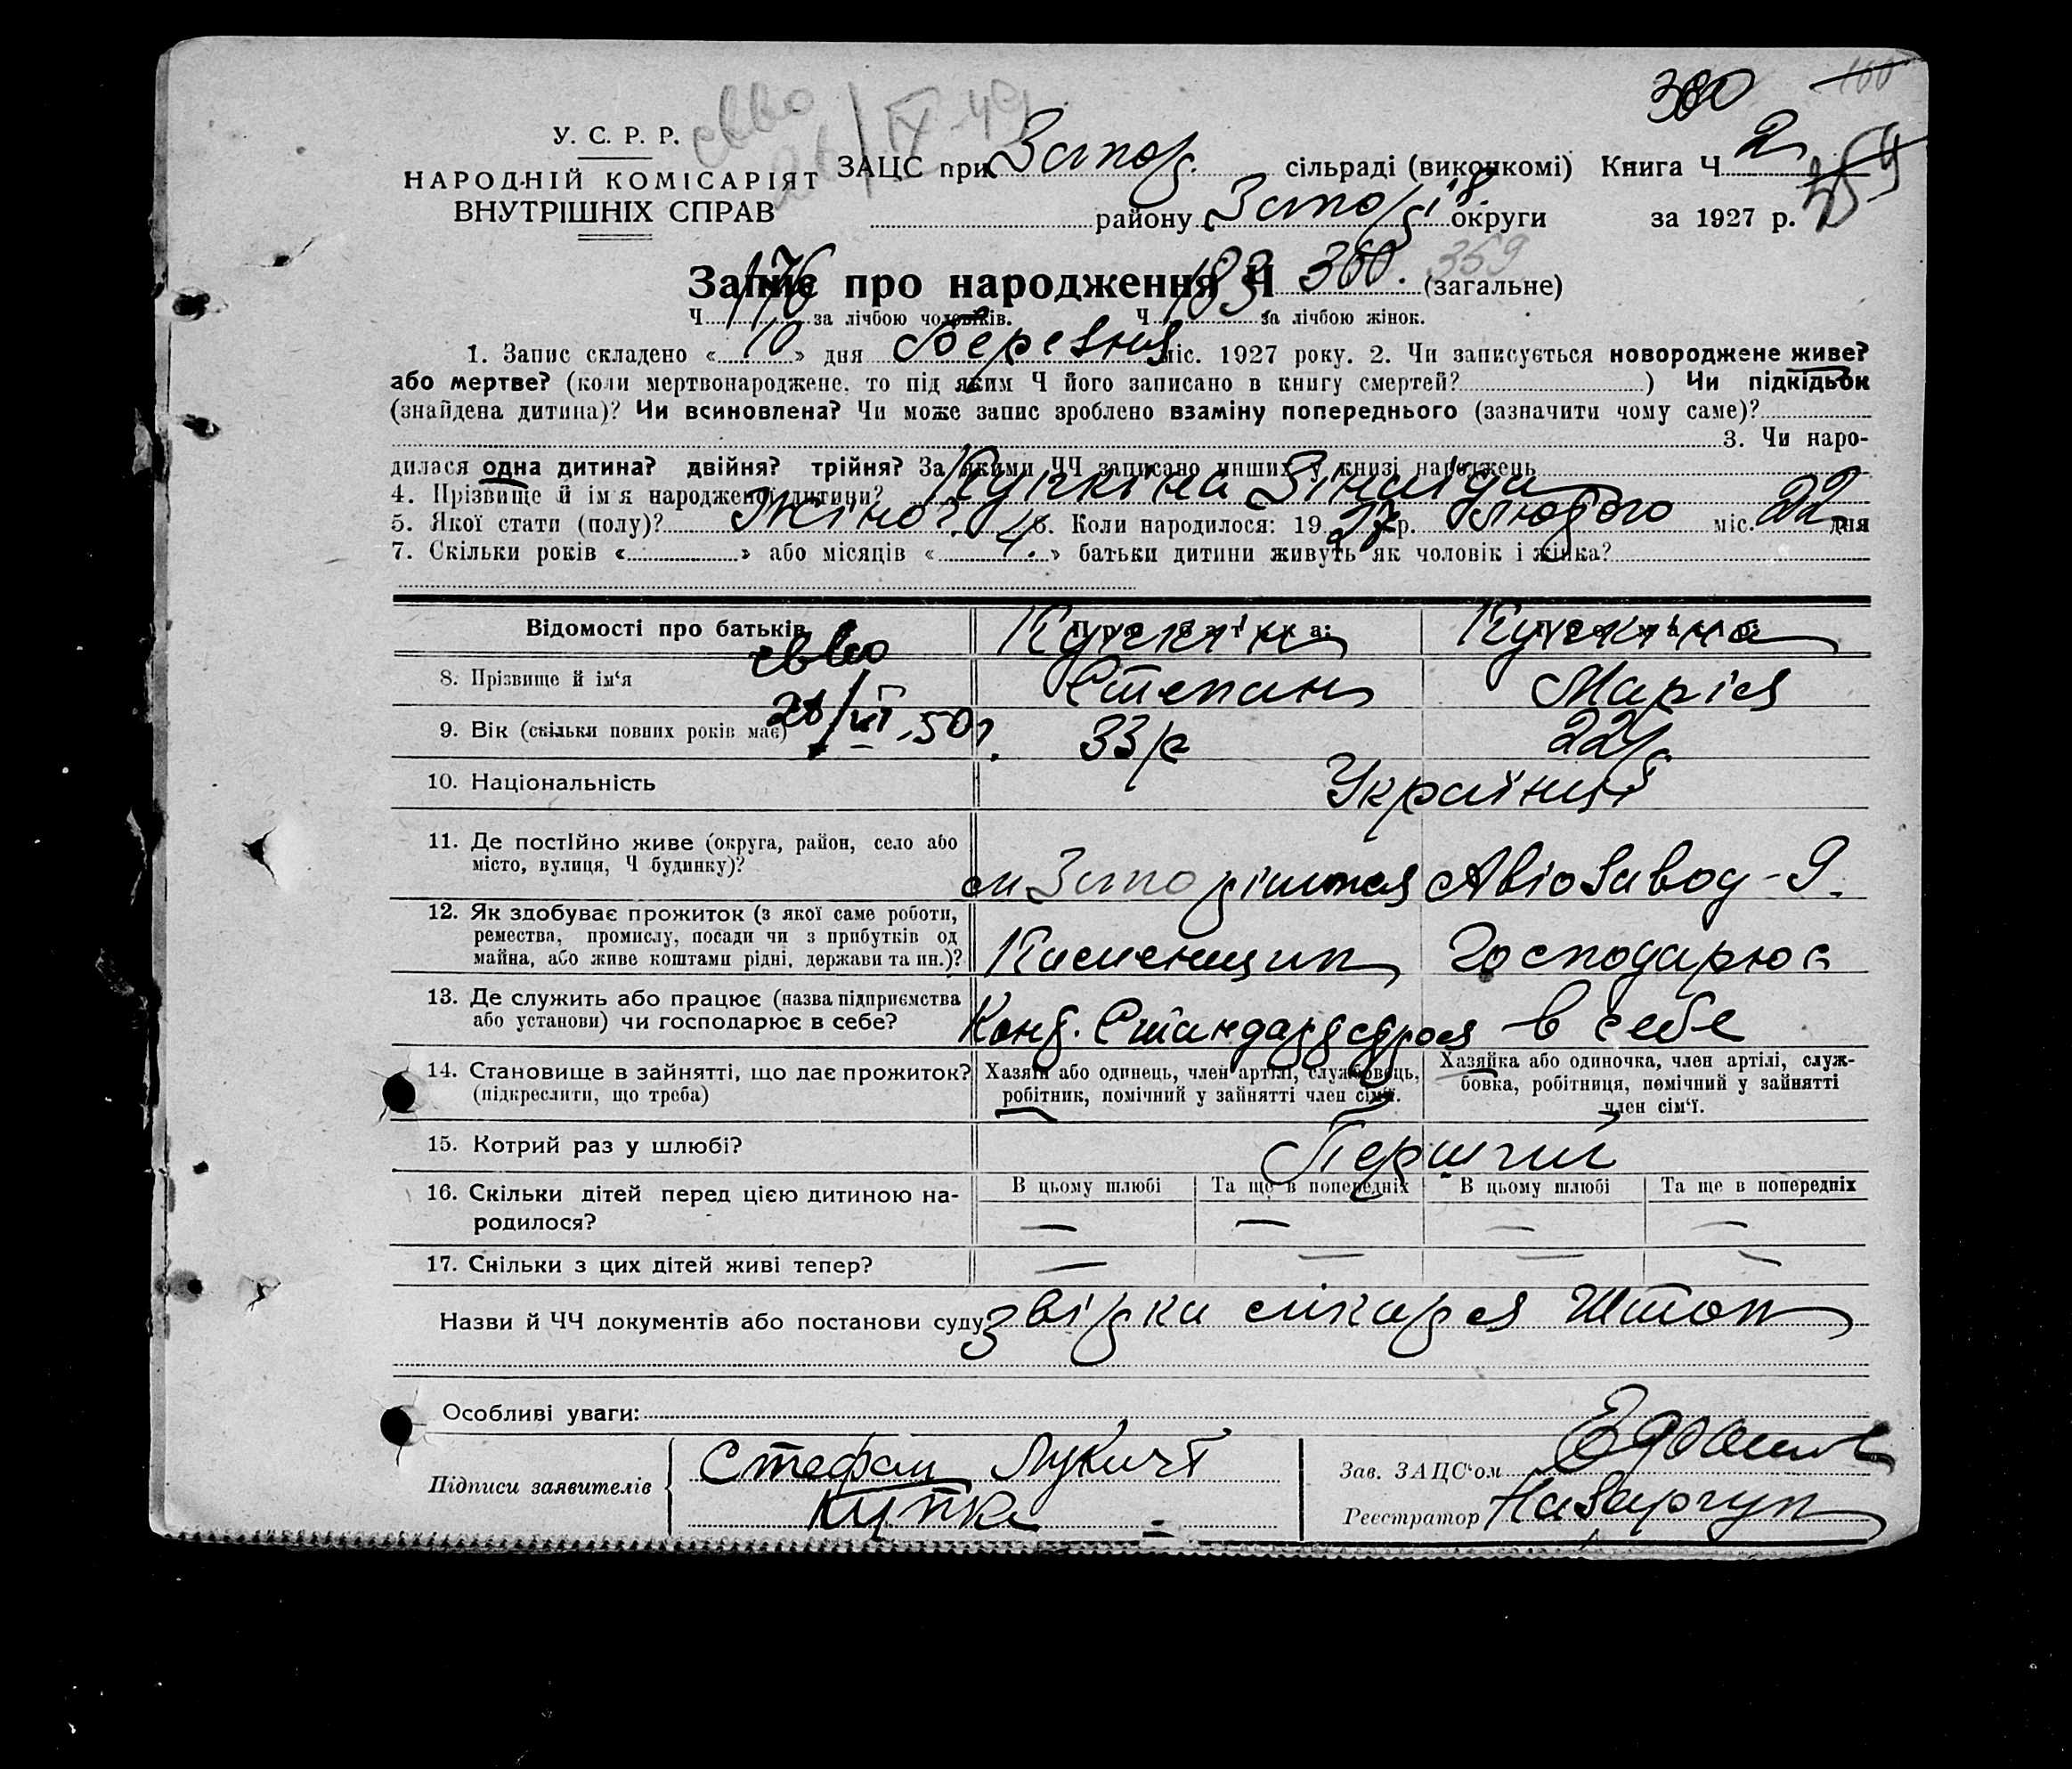 380 100
У. С. Р. Р.
НАРОДНІЙ КОМІСАРІЯТ
ВНУТРІШНІХ СПРАВ
ЗАЦС при Запор. сільраді (виконкомі) Книга Ч 2
району Запоріз округи за 1927 р.
Запис про народження Ч 380. 359 (загальне)
Ч 176 за лічбою чоловіків. Ч 183 за лічбою жінок.
1. Запис складено « 10 » дня березня міс. 1927 року. 2. Чи записується новороджене живе?
або мертве? (коли мертвонароджене, то під яким Ч його записано в книгу смертей? ) Чи підкідьок
(знайдена дитина)? Чи всиновлена? Чи може запис зроблено взаміну попереднього (зазначити чому саме)?
3. Чи наро-
дилася одна дитина? двійня? трійня? За якими ЧЧ записано инших у книзі народжень
4. Прізвище й ім'я народженої дитини? Зінаїда
5. Якої стати (полу)? Жіноч. 6. Коли народилося: 19 27 р. лютого міс. 22 дня
7. Скільки років « » або місяців « » батьки дитини живуть як чоловік і жінка?
Відомості про батьків
8. Прізвище й ім'я Степан Марія
9. Вік (скільки повних років має) 33 р 22 р
10. Національність Українці
11. Де постійно живе (округа, район, село або
місто, вулиця, Ч будинку)?
м Запоріжжя Авіозавод - 9.
12. Як здобуває прожиток (з якої саме роботи,
ремества, промислу, посади чи з прибутків од
майна, або живе коштами рідні, держави та ин.)?
Каменщик Господарює
13. Де служить або працює (назва підприємства
або установи) чи господарює в себе?
в себе
14. Становище в зайнятті, що дає прожиток?
(підкреслити, що треба)
Хазяїн або одинець, член артілі, службовець,
робітник, помічний у зайнятті член сім'ї.
Хазяйка або одиночка, член артілі, служ-
бовка, робітниця, помічний у зайнятті
член сім'ї.
15. Котрий раз у шлюбі? Перший
16. Скільки дітей перед цією дитиною на-
родилося?
В цьому шлюбі Та ще в попередніх В цьому шлюбі Та ще в попередніх
— — — —
17. Скільки з цих дітей живі тепер?
— — — —
Назви й ЧЧ документів або постанови суду звідка лікаря Штоп
Особливі уваги:
Підписи заявителів Стефан Лукичт
Зав. ЗАЦС'ом
Реєстратор